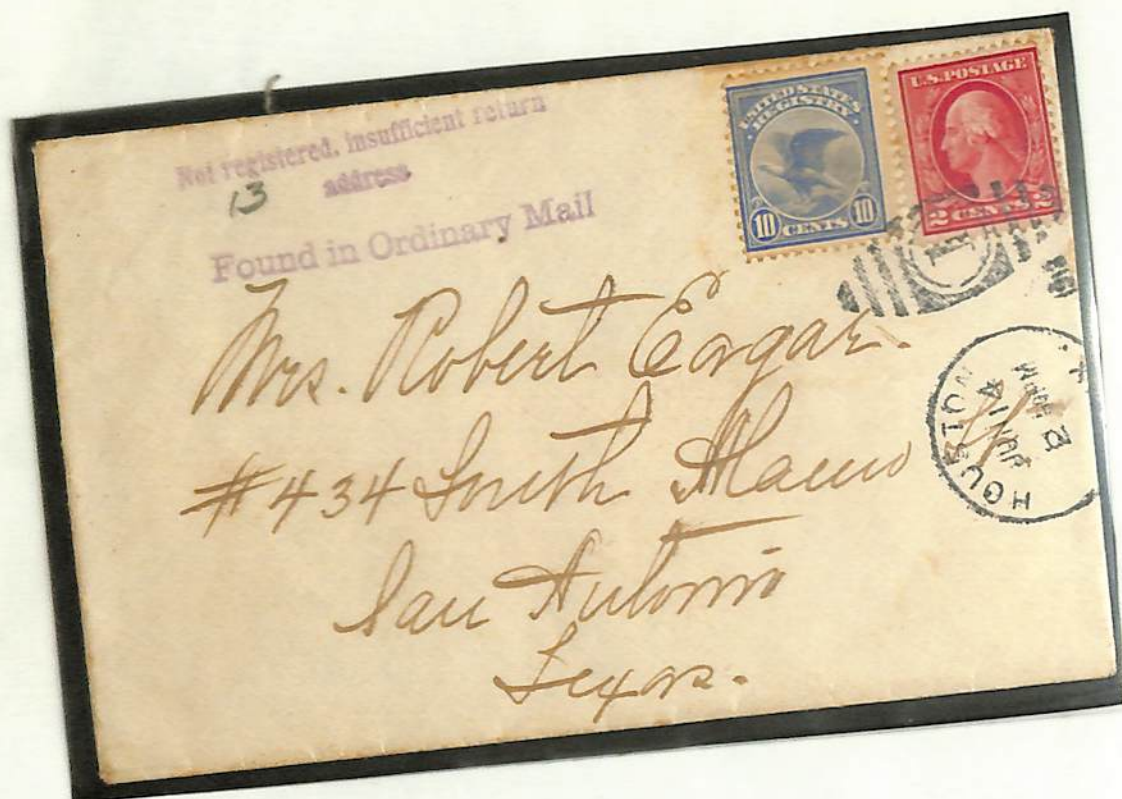 Not registered, insufficient return
address
13
Found in Ordinary Mail
UNITED STATES
REGISTRY
10 CENTS 10
U.S. POSTAGE
2 CENTS 2
HOUSTON
JUN 14
2
PM
Mrs. Robert Edgar.
#434 South Alamo St
San Antonio
Texas.